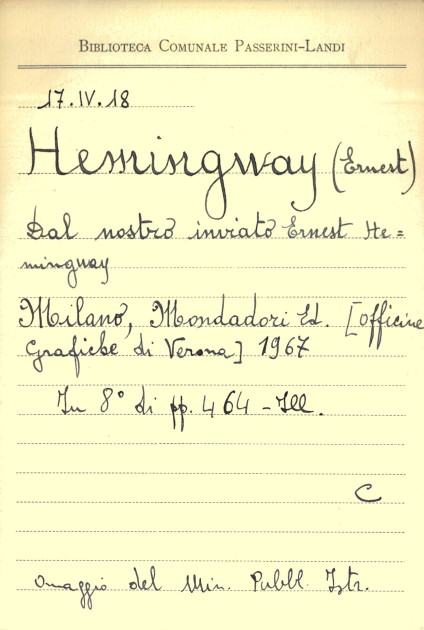 BIBLIOTECA COMUNALE PASSERINI-LANDI
17.IV.18
Hemingway (Ernest)
Dal nostro inviato Ernest He=
mingway
Milano, Mondadori Ed. [Officine
Grafiche di Verona] 1967
In 8° di pp. 464 - Ill.
C
Omaggio del Min. Pubbl. Istr.